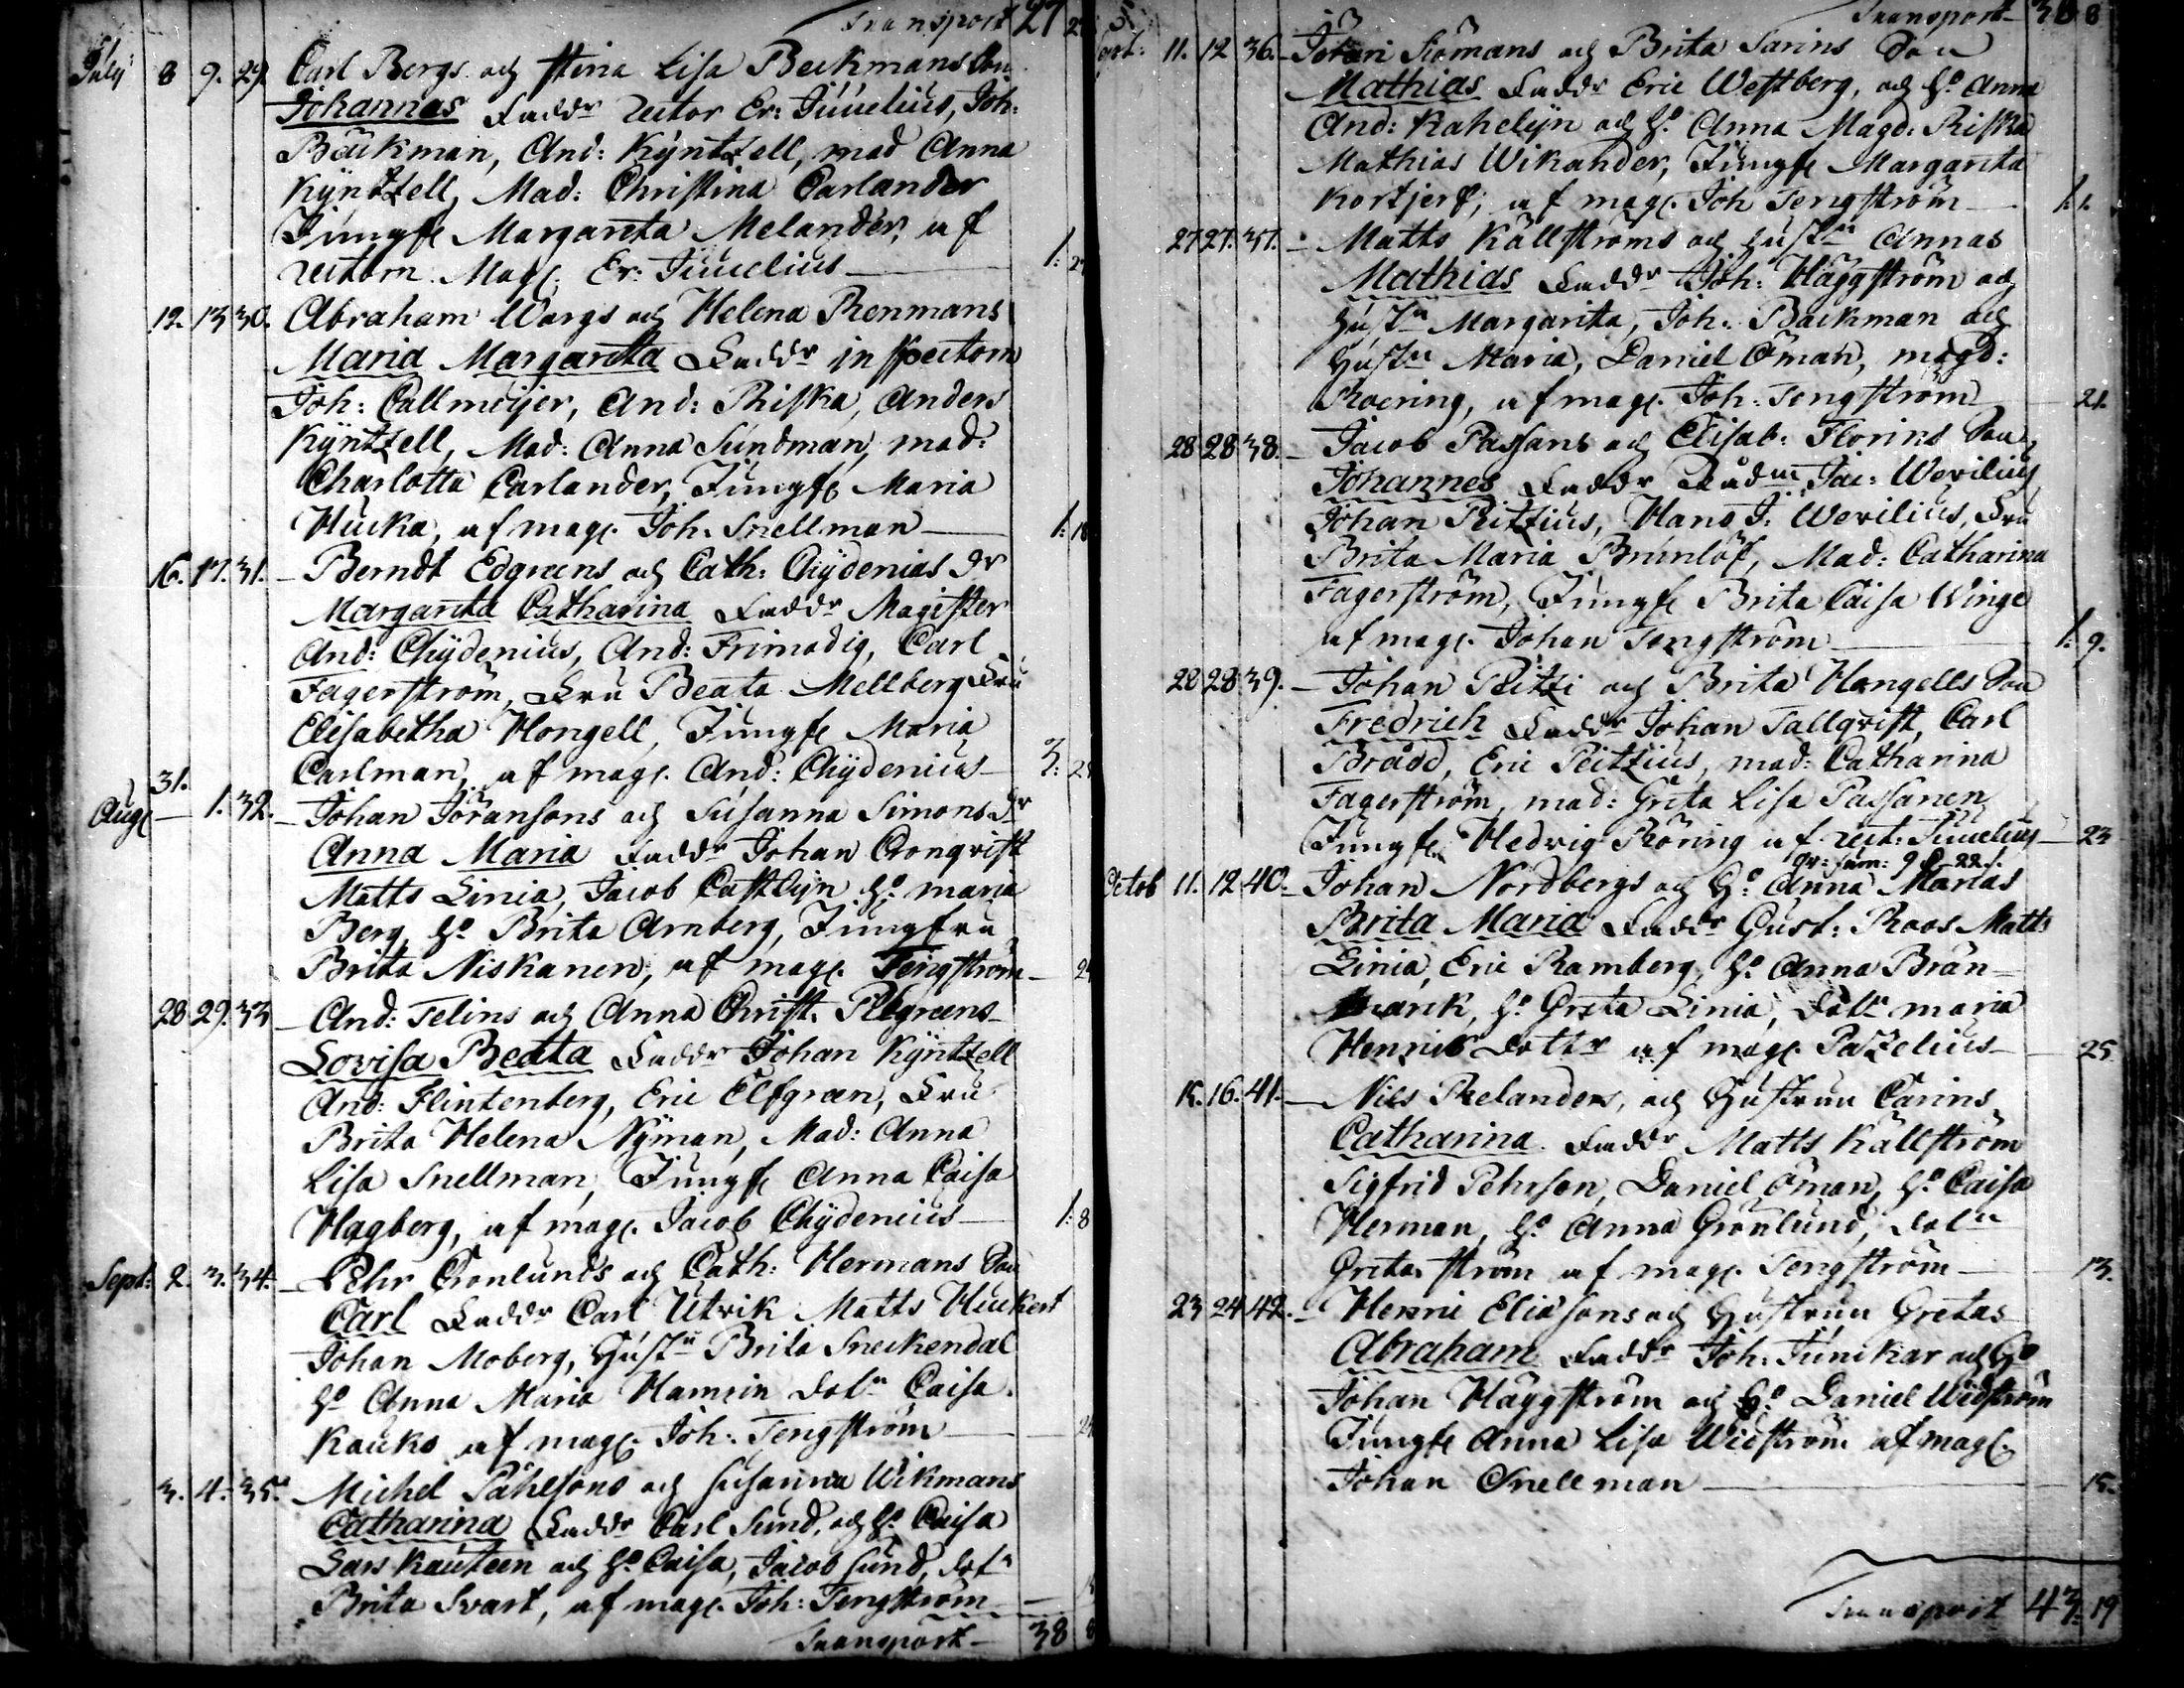 Transport 27
July 8 9. 29. Carl Bergs och Stina Lisa Beckmans Son
Johannes Faddr rector Er: Juvelius, Joh:
Bäckman, And: Kÿntzell, mad Anna
Kÿntzell, Mad: Christina Carlander
Jungfr Margareta Melander, af
rectorn Mag. Er: Juvelius
12. 13 30. Abraham Wargs och Helena Renmans
Maria Margareta Faddr inspectorn
Joh: Callmeijer, And: Riska, Anders
Kÿntzell, Mad: Anna Sundman, mad:
Charlotta Carlander, Jungfr Maria
Hucka, af mag. Joh. Snellman 1: 18
16. 17. 31. Berndt Edgrens och Cath: Chÿdenias dr
Margareta Catharina Faddr Magister
And: Chÿdenius, And: Frimodig, Carl
Fagerström, Fru Beata Mellberg Fru
Elisabetha Hongell, Jungfr Maria
Carlman, af mag. And: Chÿdenius
31.
Aug. 1. 32. Johan Joransons och Susanna Simons dr
Anna Maria Faddr Johan Cronqvist
Matts Linia, Jacob Castlijn, ho maria
Berg, ho Brita Arnberg, Jungfru
Brita Niskanen, af mag. Tengström
28 29. 33 And: Telins och Anna Christ. Elfgreens
Lovisa Beata Faddr Johan Kÿntzell
And: Flintenberg, Eric Elfgren, Fru
Brita Helena Nÿman, Mad: Anna
Lisa Snellman, Jungfr Anna Caisa
Hagberg, af mag. Jacob Chÿdenius 1: 8
Sept: 2. 3. 34. Pehr Cronlunds och Cath: Hermans Son
Carl Faddr Carl Utrik Matts Huckert
Johan Moberg, Hustru Brita Sneckendal
ho Anna Maria Hamrin dotn Caisa
Kauko af mag. Joh: Tengström
3. 4. 35. Michel Påhlsons och Susanna Wikmans
Catharina Faddr Carl Sund, och ho Caisa
Lars Kauteen och ho Caisa, Jacob Sund, dotn
Brita Svart, af mag. Joh: Tengström
Transport 38 8
Transport 38 8
11. 12 36. Johan Sjömans och Brita Sarins Son
Mathias Faddr Eric Westberg, och ho Anna
And: Kahelijn och ho Anna Magd: Riska
Mathias Wikander, Jungfr Margareta
Kortjerf, af mag. Joh Tengström 1: 1.
27 27. 37. Matts Källströms och hustru Annas
Mathias Faddr Joh: Häggström och
Hustru Margarita, Joh: Backman och
Hustru Maria, Daniel Öman, magd:
Roering, af mag. Joh: Tengström 21.
28 28 38. Jacob Passans och Elisab: Florins Son
Johannes Faddr Rådm Jac: Werilius
Johan Peitzius, Hans J: Werilius, Fru
Brita Maria Brunlöf, Mad: Catharina
Fagerström, Jungfr Brita Caisa Winge
af mag. Johan Tengström 1: 9.
28 28 39. Johan Peitzi och Brita Hongells Son
Fredrich Faddr Johan Tallqvist, Carl
Brådd, Eric Peitzius, mad: Catharina
Fagerström, mad: Greta Lisa Passanen
Jungfr Hedvig Röring af rect: Juvelius 23
Octob 11. 12 40. Johan Nordbergs och Ho Anna Marias
Brita Maria Faddr Gust: Roos Matts
Linia, Eric Ramberg, ho Anna Brän
marck, ho Greta Linia, dotn maria
Henrics dotter af mag. Pazelius 25
15. 16. 41. Nils Relanders, och Hustrun Carins
Catharina Faddr Matts Källström
Sigfrid Pehrson, Daniel Öman, ho Caisa
Herman, ho Anna Grönlund, dotn
Greta ström af mag. Tengström 13.
23 24 42. Henric Eliasons och Hustrun Gretas
Abraham Faddr Joh: Junikar och ho
Johan Häggström och ho Daniel Widström
Jungfr Anna Lisa Widström af mag.
Johan Snellman 15.
Transport 43. 19